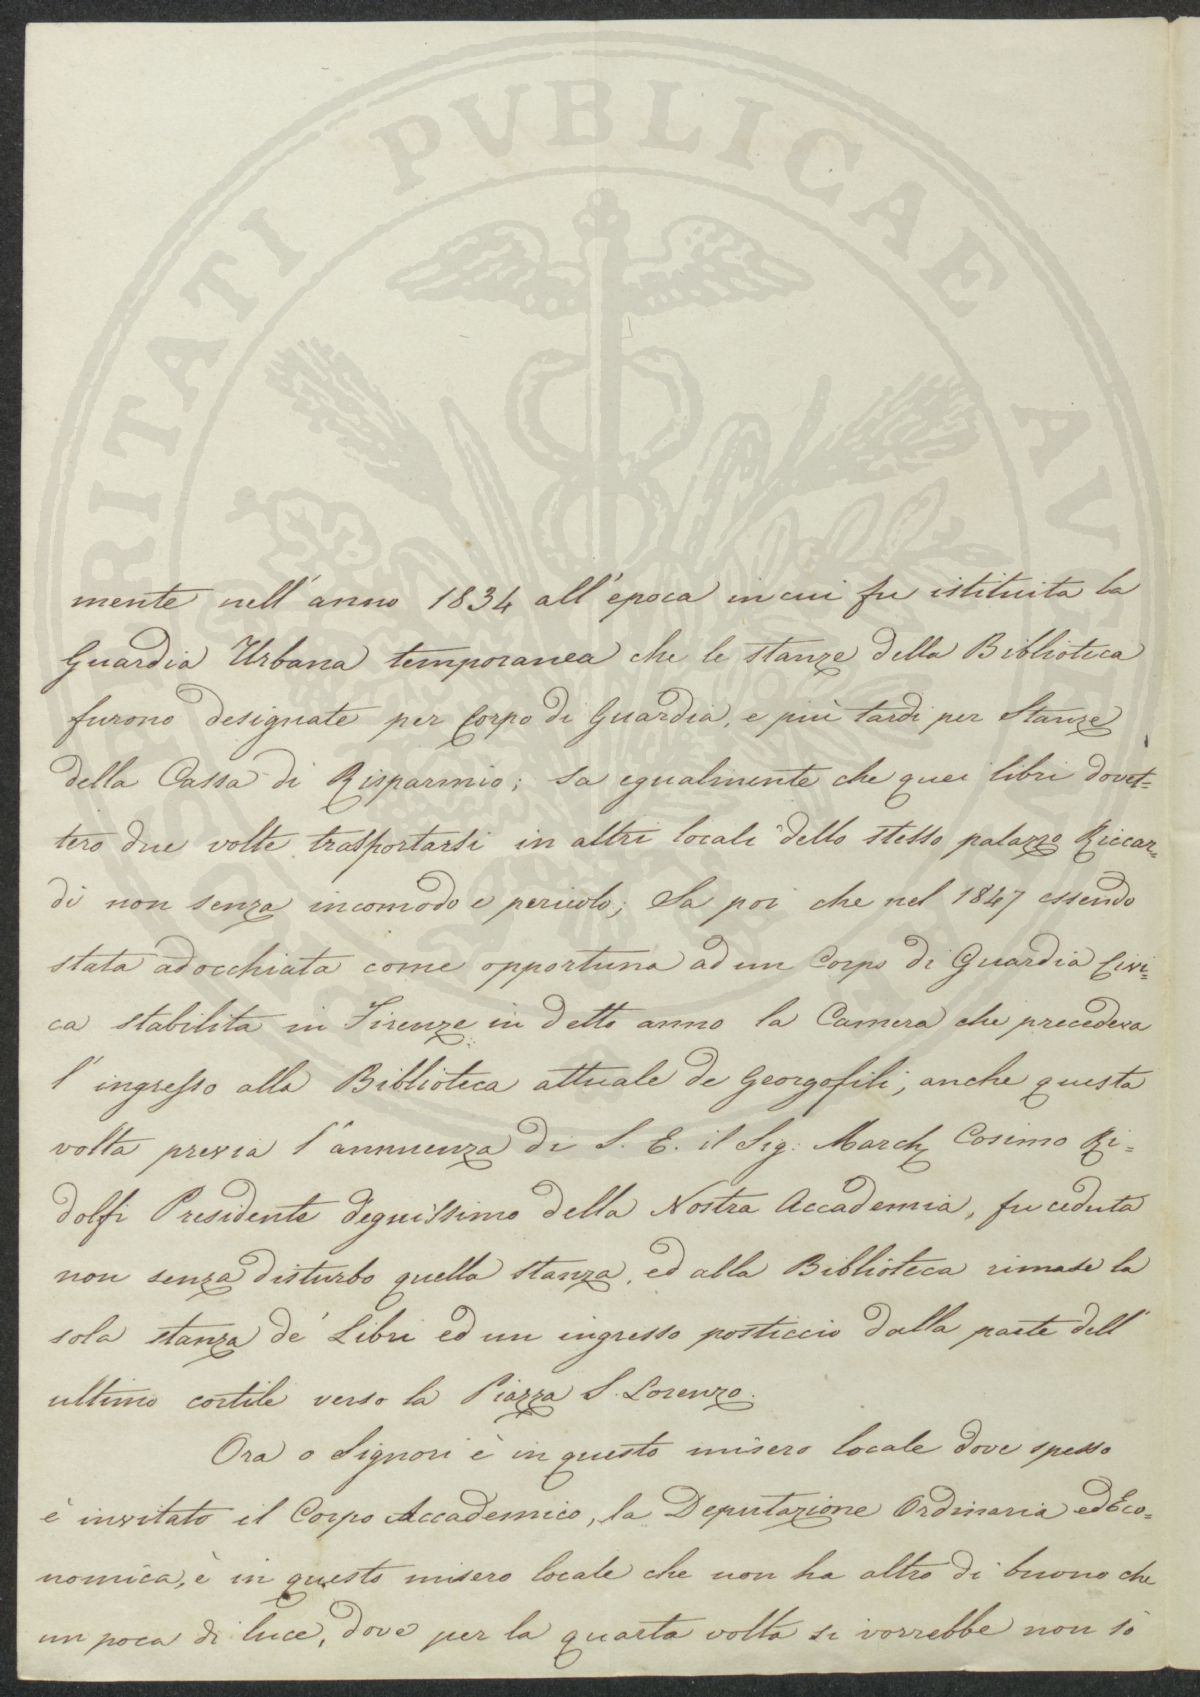 mente nell'anno 1834 all'epoca in cui fu istituita la
Guardia Urbana temporanea che le stanze della Biblioteca
furono designate per Corpo di Guardia, e più tardi per Stanze
della Cassa di Risparmio; sa egualmente che quei libri dovet=
tero due volte trasportarsi in altri locali dello stesso palazzo Riccar=
di non senza incomodo e pericolo; Sa poi che nel 1847 essendo
stata adocchiata come opportuna ad un Corpo di Guardia Civi=
ca stabilita in Firenze in detto anno la Camera che precedeva
l'ingresso alla Biblioteca attuale de Georgofili, anche questa
volta previa l'annuenza di S. E. il Sig: March Cosimo Ri=
dolfi Presidente degnissimo della Nostra Accademia, fu ceduta
non senza disturbo quella stanza, ed alla Biblioteca rimase la
sola stanza de' Libri ed un ingresso posticcio dalla parte dell'
ultimo cortile verso la Piazza S. Lorenzo.
Ora o Signori è in questo misero locale dove spesso
è invitato il Corpo Accademico, la Deputazione Ordinaria ed Eco=
nomica, è in questo misero locale che non ha altro di buono che
un poca di luce, dove per la quarta volta si vorrebbe non sò
PUBLICAE